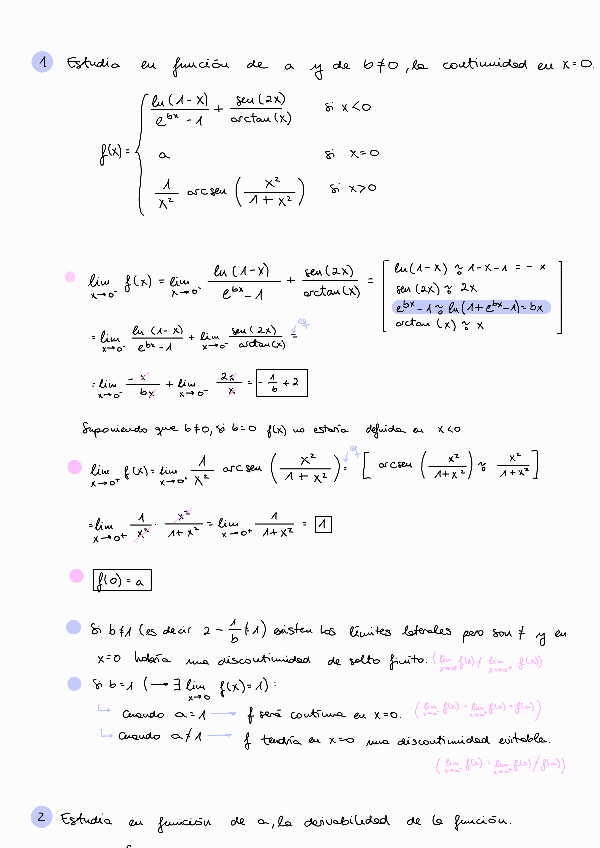 1 Estudia en función de a y de b ≠ 0, la continuidad en x = 0.
f(x) = { ln(1-x)/(e^bx - 1) + sen(2x)/arctan(x) si x < 0
a si x = 0
1/x² arcsen (x²/(1+x²)) si x > 0
lim x→0⁻ f(x) = lim x→0⁻ ln(1-x)/(e^bx - 1) + sen(2x)/arctan(x) = [ ln(1-x) ~₀ 1-x-1 = -x
sen(2x) ~₀ 2x
e^bx - 1 ~₀ ln(1+e^bx-1) = bx
arctan(x) ~₀ x ]
= lim x→0⁻ ln(1-x)/(e^bx - 1) + lim x→0⁻ sen(2x)/arctan(x) =
= lim x→0⁻ -x/bx + lim x→0⁻ 2x/x = -1/b + 2
Suponiendo que b≠0, si b=0 f(x) no estaría definida en x<0
lim x→0⁺ f(x) = lim x→0⁺ 1/x² arcsen (x²/(1+x²)) = [ arcsen (x²/(1+x²)) ~₀ x²/(1+x²) ]
= lim x→0⁺ 1/x² · x²/(1+x²) = lim x→0⁺ 1/(1+x²) = 1
f(0) = a
Si b≠1 (es decir 2 - 1/b ≠ 1) existen los límites laterales pero son ≠ y en
x=0 habría una discontinuidad de salto finito. (lim x→0⁻ f(x) ≠ lim x→0⁺ f(x))
Si b=1 (→ ∃ lim x→0 f(x) = 1) :
Cuando a=1 → f será continua en x=0. (lim x→a⁻ f(x) = lim x→a⁺ f(x) = f(a))
Cuando a≠1 → f tendría en x=0 una discontinuidad evitable.
(lim x→a⁻ f(x) = lim x→a⁺ f(x) ≠ f(a))
2 Estudia en función de a, la derivabilidad de la función.